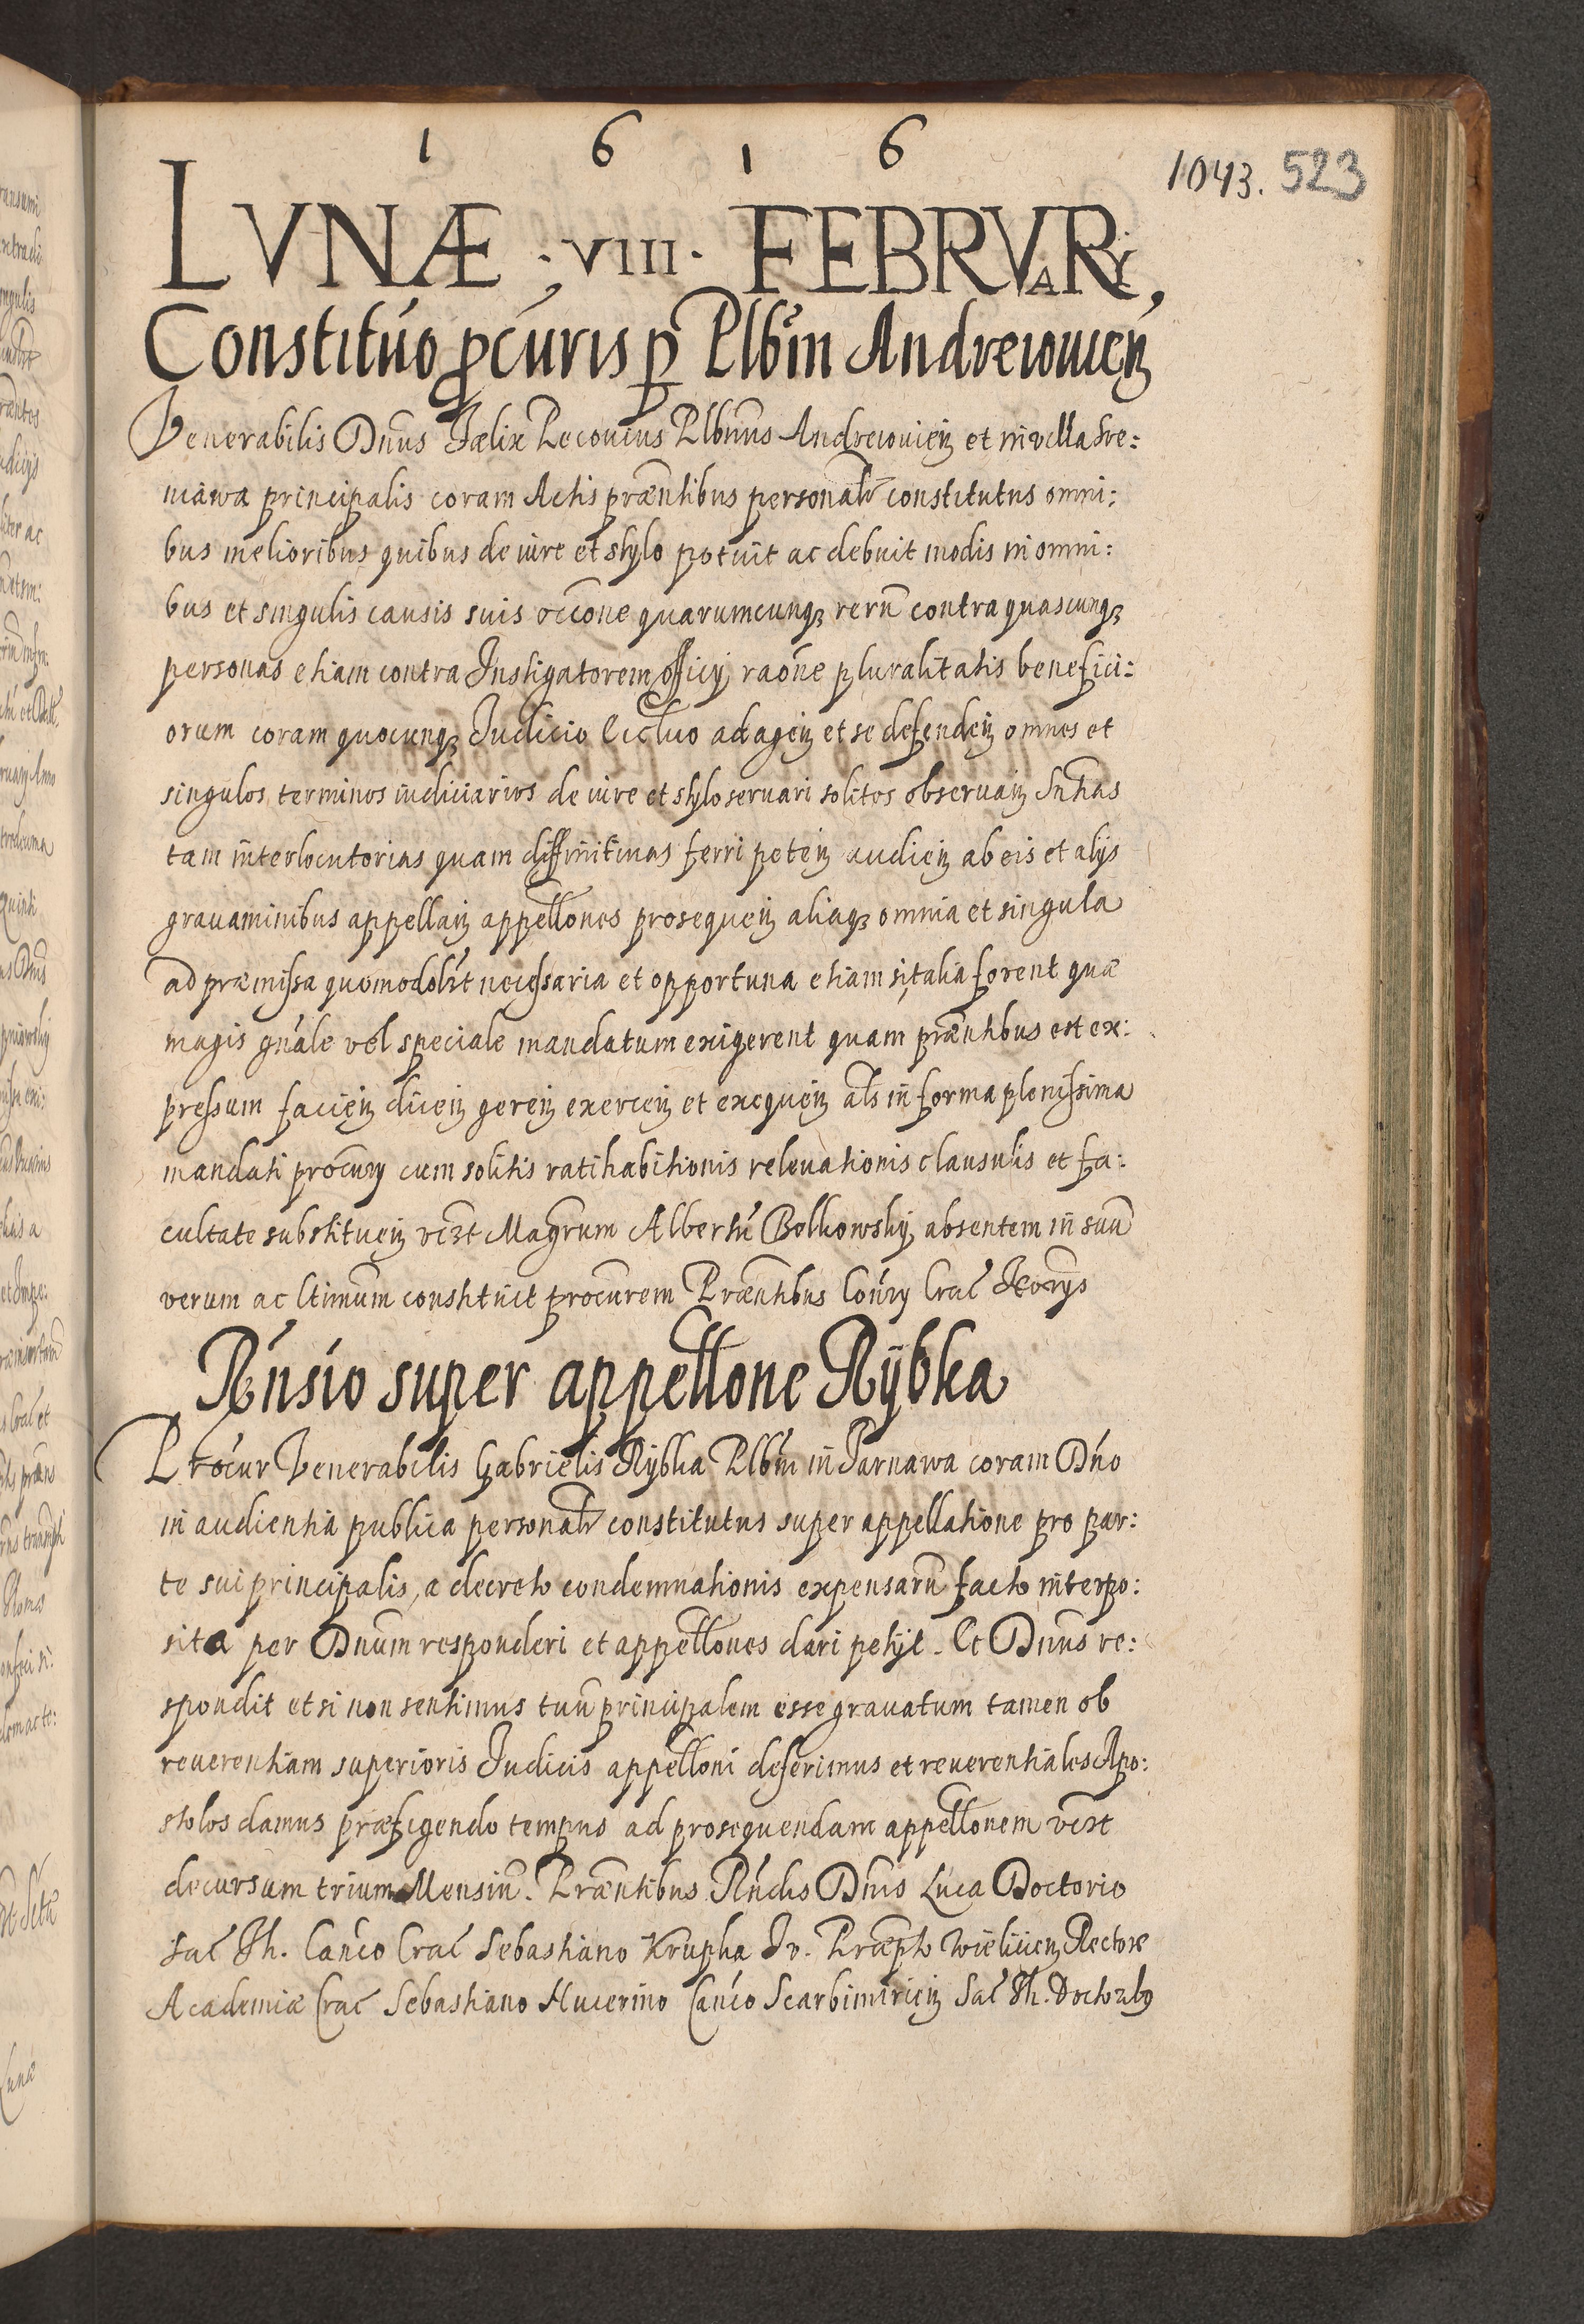 1 6 1 6
1043. 523
LVNÆ ; VIII. FEBRVARY,
Constitúo ꝓcúris ꝑ Plb̃m Andreiouieñ
Venerabilis Dnus Fælix Lecouius Plbnus Andreiouieñ et in villa Sre:
niawa principalis coram Actis præntibus personalr constitutus omni:
bus melioribus quibus de iure et stylo potuit ac debuit modis in omni:
bus et singulis causis suis occone quarumcunqꝫ rerũ contra quascunqꝫ
personas etiam contra Instigatorem officij raone pluralitatis benefici:
orum coram quocunqꝫ Judicio Ecctico ad ageñ et se defendeñ omnes et
singulos terminos iudiciarios de iure et stylo seruari solitos obseruañ Sntias
tam interlocutorias quam diffinitiuas ferri peteñ audieñ ab eis et alijs
grauaminibus appellañ appellones prosequeñ aliaqꝫ omnia et singula
ad præmissa quomodolꝫt necessaria et opportuna etiam si talia forent quæ
magis gnále vel speciale mandatum exigerent quam præntibus est ex:
pressum facieñ diceñ gereñ exerceñ et exequeñ als in forma plenissima
mandati procury cum solitis ratihabitionis releuationis clausulis et fa:
cultate substitueñ vcꝫt Magrum Albertũ Bolkowskij absentem in suũ
verum ac ltimum constituit procurem Præntibus Coñry Crac Norys
Rńsio super appellone Rÿbka
Procur Venerabilis Gabrielis Rÿbka Plbni in Tarnawa coram Dńo
in audientia publica personalr constitutus super appellatione pro par:
te sui principalis, a decreto condemnationis expensarũ facto interpo:
sita per Dnum responderi et appellones dari petijt. Et Dnus re:
spondit etsi non sentimus tuũ principalem esse grauatum tamen ob
reuerentiam superioris Judicis appelloni deferimus et reuerentiales Apo:
stolos damus præfigendo tempus ad prosequendam appellonem vcꝫt
decursum trium Mensiũ. Præntibus Rńdis Dnis Luca Doctorio
Sac Th. Cańco Crac Sebastiano Krupka Jv. Præpto Wielicień Rectore
Academiæ Crac Sebastiano Nucerino Cańco Scarbimirień Sac Th. Doctorbꝫ